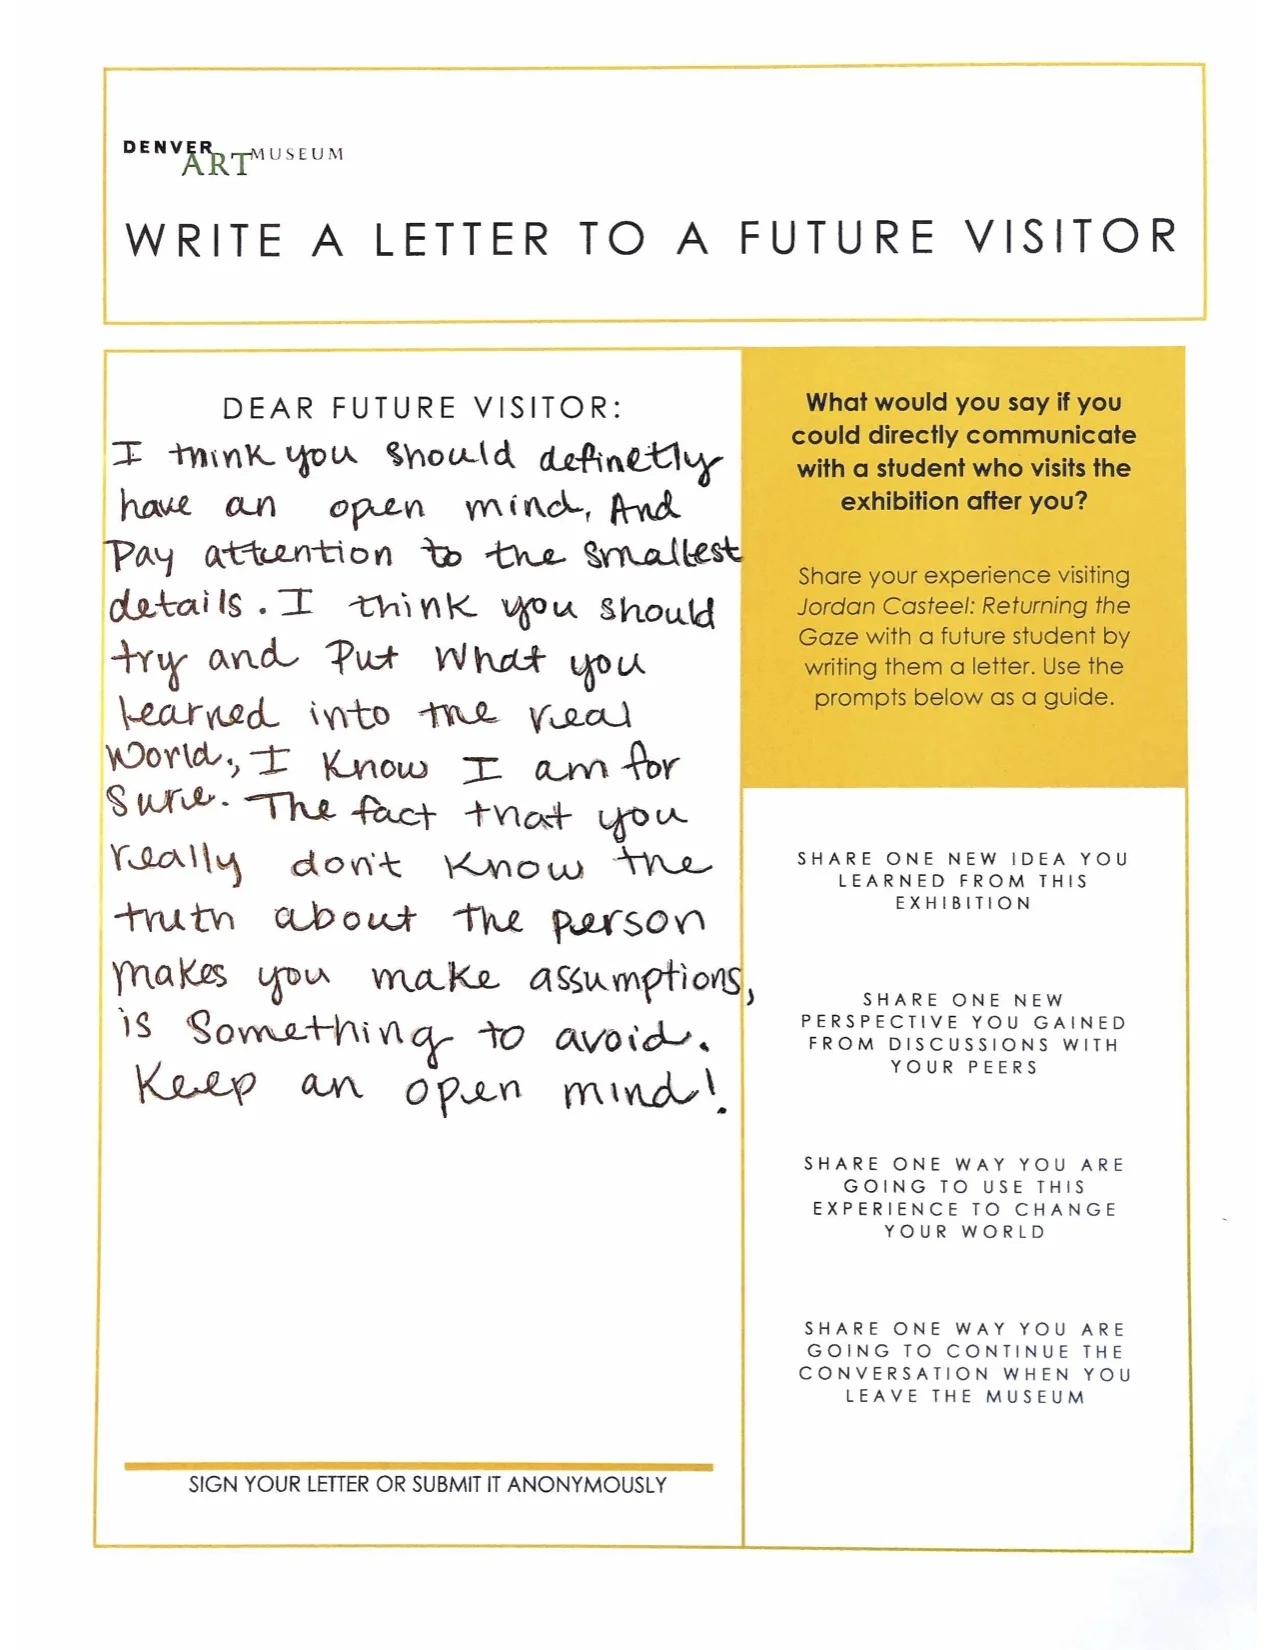 DENVER
ART MUSEUM
WRITE A LETTER TO A FUTURE VISITOR
DEAR FUTURE VISITOR:
I think you should definetly
have an open mind, And
Pay attention to the smallest
details. I think you should
try and Put What you
learned into the real
World, I Know I am for
Sure. The fact that you
really don't Know the
truth about the person
makes you make assumptions,
is Something to avoid.
Keep an open mind!
SIGN YOUR LETTER OR SUBMIT IT ANONYMOUSLY
What would you say if you
could directly communicate
with a student who visits the
exhibition after you?
Share your experience visiting
Jordan Casteel: Returning the
Gaze with a future student by
writing them a letter. Use the
prompts below as a guide.
SHARE ONE NEW IDEA YOU
LEARNED FROM THIS
EXHIBITION
SHARE ONE NEW
PERSPECTIVE YOU GAINED
FROM DISCUSSIONS WITH
YOUR PEERS
SHARE ONE WAY YOU ARE
GOING TO USE THIS
EXPERIENCE TO CHANGE
YOUR WORLD
SHARE ONE WAY YOU ARE
GOING TO CONTINUE THE
CONVERSATION WHEN YOU
LEAVE THE MUSEUM